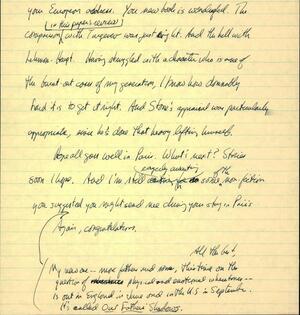 your European address. Your new book is wonderful. The
(in the paper review)
comparison with Turgenev was just right. And the hell with
Lehmann-Haupt. Having struggled with a character who is one of
the burnt-out cases of my generation, I know how damnably
hard it is to get it right. And Stone's appraisal was particularly
appropriate, since he's done that heavy lifting himself.
Hope all goes well in Paris. What's next? Stories
soon I hope. And I'm still eagerly awaiting some of the non fiction
you suggested you might send me during your stay in Paris
Again, congratulations.
All the best,
My new one -- more father and son, this time on the
question of physical and emotional wholeness --
is out in England in June and in the U.S. in September.
It's called Our Father's Shadows.